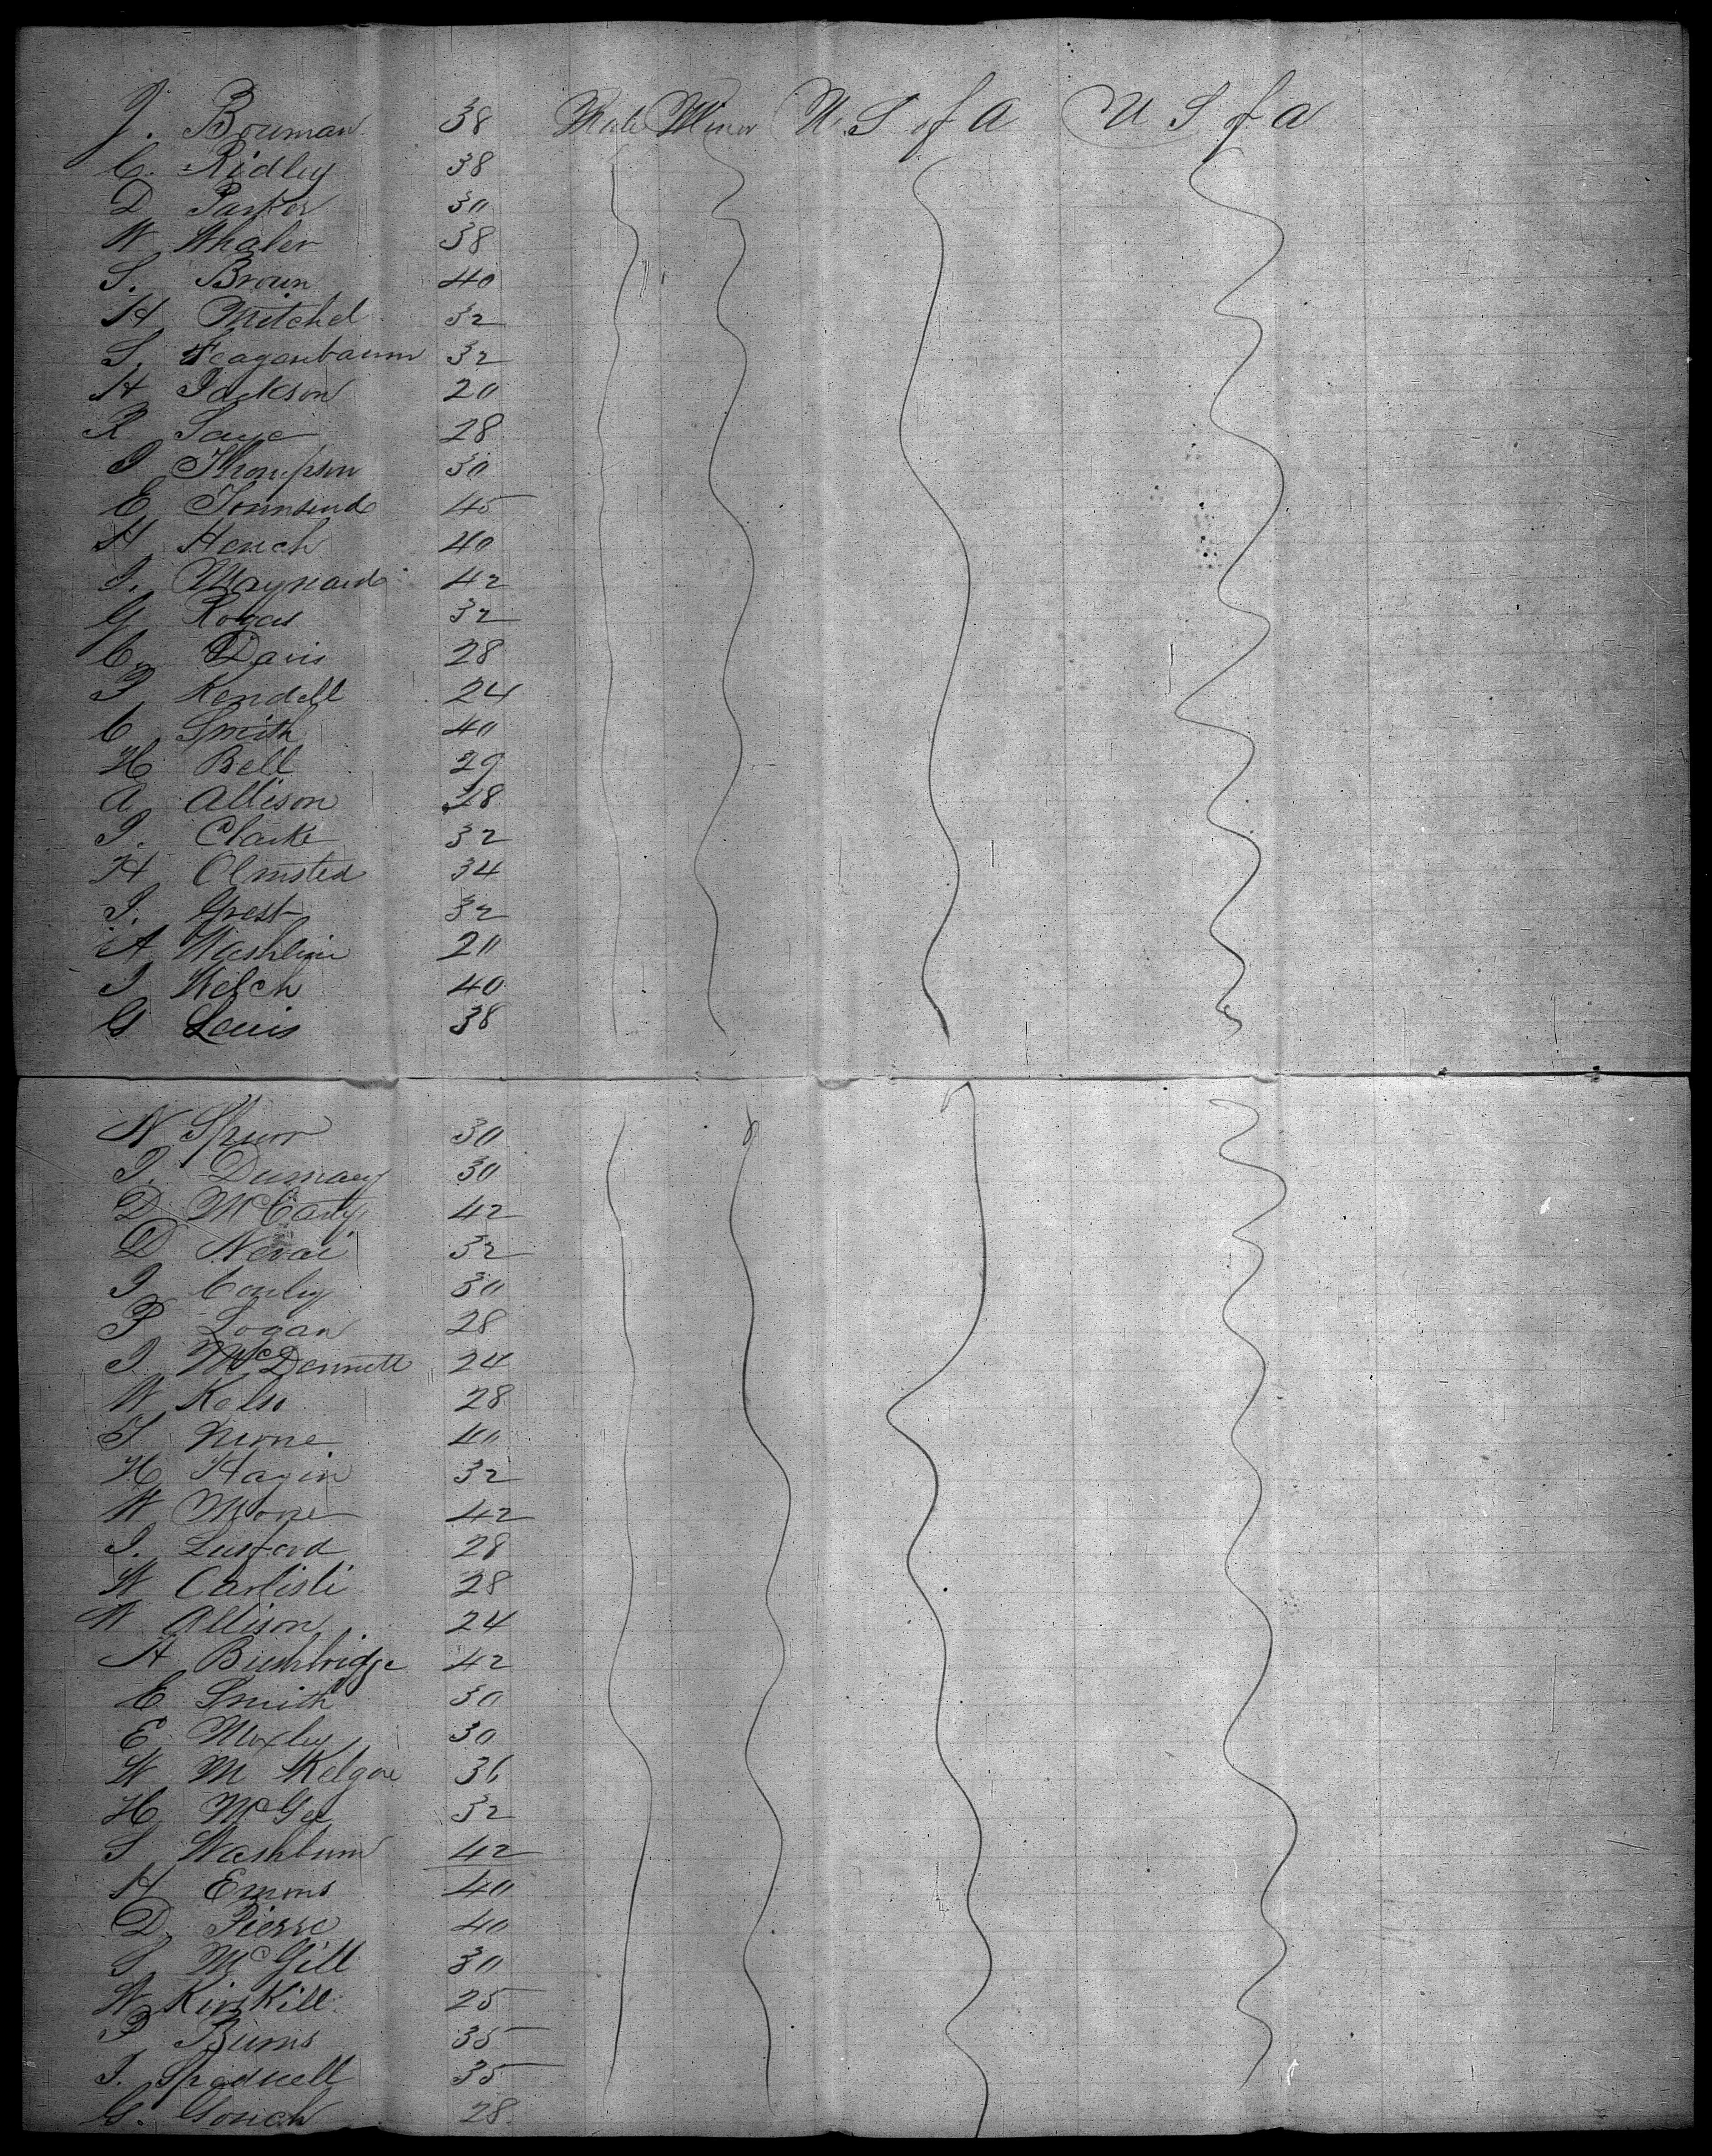 J. Bouman 38 Male Miner U. S of A U S of A
C. Ridley 38
D Parker 30
W Whaler 38
S. Broun 40
H Mitchel 32
S. Feagenbaum 32
H Jackson 20
R Saye 28
J Thompson 30
E Tounsend 45
H Hench 40
J. Maynard 42
G Rogas 32
C. Davis 28
P Kendell 24
C Smith 40
H Bell 29
A Allison 28
J. Clarke 32
H Olmsted 34
J. Grest 32
A 20
J Welch 40
G Leuis 38
N Spurr 30
J. 30
D McCarty 42
D Nevai 32
J Conley 30
P Logan 28
J McDennett 24
W Kelso 28
J More 40
H Hagin 32
W More 42
J. Lusford 28
W Carlisli 28
W Allison 24
H Bushbridge 42
E Smith 30
E Moxley 30
W M Kelgore 36
H McGee 32
S Washburn 42
H Emons 40
D. Pierre 40
J McGill 30
W KirsKill 25
P Burns 35
J. Speduell 35
G. Gouch 28